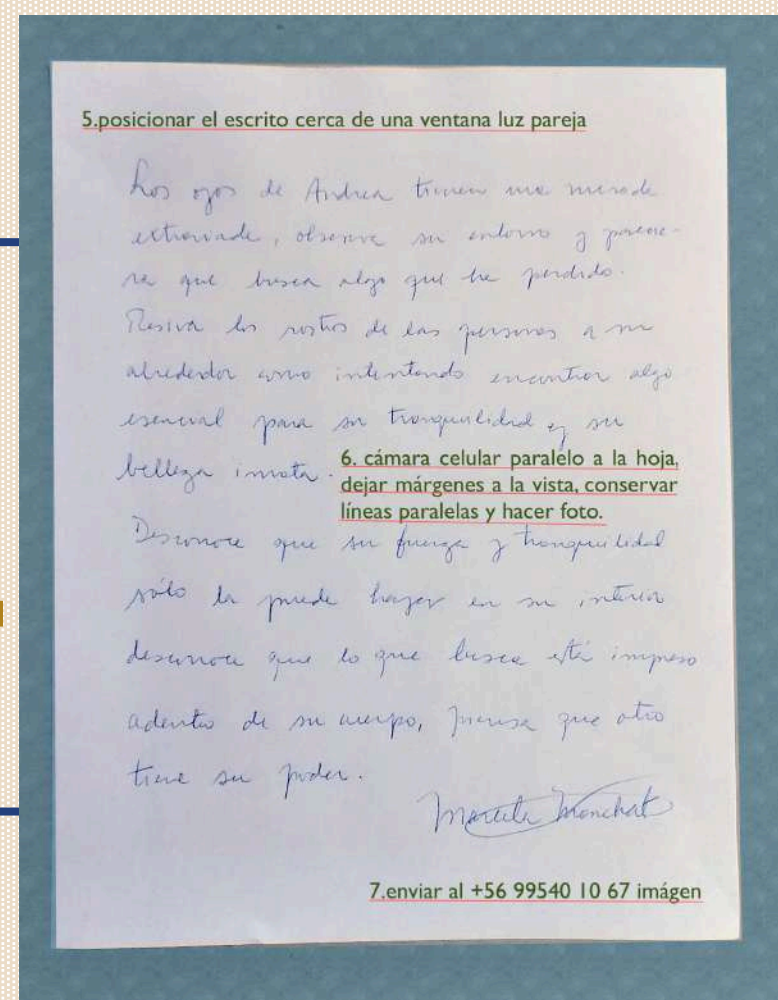 5.posicionar el escrito cerca de una ventana luz pareja
Los ojos de Andrea tienen una mirada
extraviada, observa su entorno y parecie-
ra que busca algo que ha perdido.
los rostros de las personas a su
alrededor como intentando encontrar algo
esencial para su tranquilidad y su
belleza innata.
6. cámara celular paralelo a la hoja,
dejar márgenes a la vista, conservar
líneas paralelas y hacer foto.
Desconoce que su fuerza y tranquilidad
sólo la puede hayar en su interior
desconoce que lo que busca está impreso
adentro de su cuerpo, piensa que otro
tiene su poder.
7.enviar al +56 99540 10 67 imágen